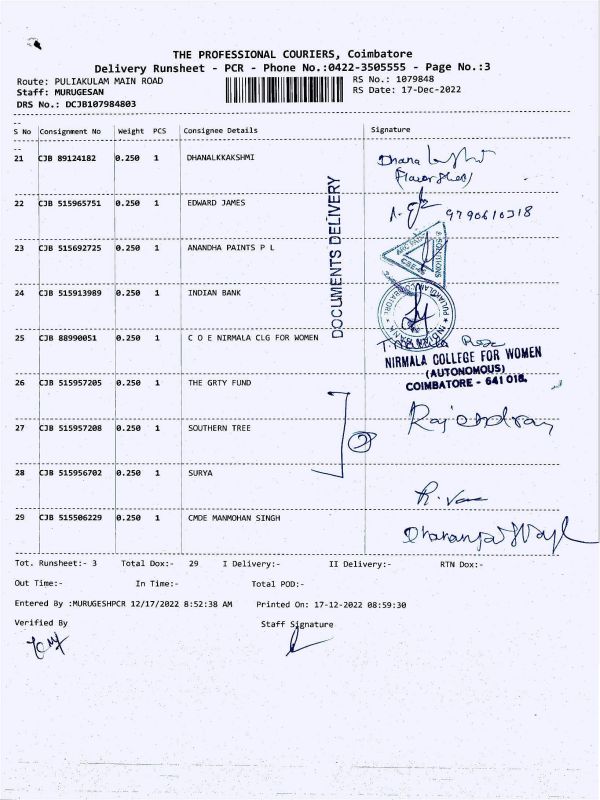 THE PROFESSIONAL COURIERS, Coimbatore
Delivery Runsheet - PCR - Phone No.:0422-3505555 - Page No.:3
Route: PULIAKULAM MAIN ROAD
Staff: MURUGESAN
DRS No.: DCJB107984803
RS No.: 1079848
RS Date: 17-Dec-2022
S No Consignment No Weight PCS Consignee Details Signature
21 CJB 89124182 0.250 1 DHANALKKAKSHMI
22 CJB 515965751 0.250 1 EDWARD JAMES 9790610318
23 CJB 515692725 0.250 1 ANANDHA PAINTS P L
24 CJB 515913989 0.250 1 INDIAN BANK
25 CJB 88990051 0.250 1 C O E NIRMALA CLG FOR WOMEN
NIRMALA COLLEGE FOR WOMEN
(AUTONOMOUS)
COIMBATORE - 641 018.
26 CJB 515957205 0.250 1 THE GRTY FUND
27 CJB 515957208 0.250 1 SOUTHERN TREE Rajendran
28 CJB 515956702 0.250 1 SURYA
29 CJB 515506229 0.250 1 CMDE MANMOHAN SINGH
DOCUMENTS DELIVERY
2
Tot. Runsheet:- 3 Total Dox:- 29 I Delivery:- II Delivery:- RTN Dox:-
Out Time:- In Time:- Total POD:-
Entered By :MURUGESHPCR 12/17/2022 8:52:38 AM Printed On: 17-12-2022 08:59:30
Verified By Staff Signature